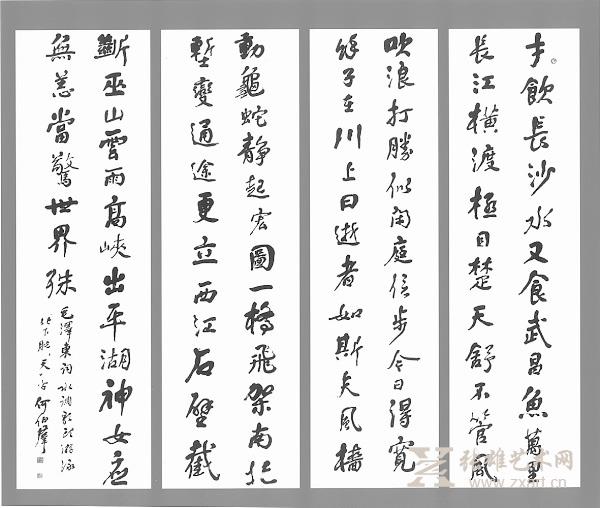 才飲長沙水又食武昌魚萬里
長江橫渡極目楚天舒不管風
吹浪打勝似閑庭信步今日得寬
餘子在川上曰逝者如斯夫風檣
動龜蛇靜起宏圖一橋飛架南北
塹變通途更立西江石壁截
斷巫山雲雨高峽出平湖神女應
無恙當驚世界殊
毛澤東詞水調歌頭游泳
北下脫一天字 何伯群
张雄艺术网
www.zxart.cn